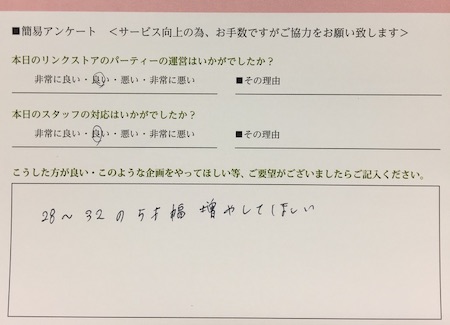 ■簡易アンケート ＜サービス向上の為、お手数ですがご協力をお願い致します＞
本日のリンクストアのパーティーの運営はいかがでしたか？
非常に良い・良い・悪い・非常に悪い ■その理由
本日のスタッフの対応はいかがでしたか？
非常に良い・良い・悪い・非常に悪い ■その理由
こうした方が良い・このような企画をやってほしい等、ご要望がございましたらご記入ください。
28～32の5才幅増やしてほしい